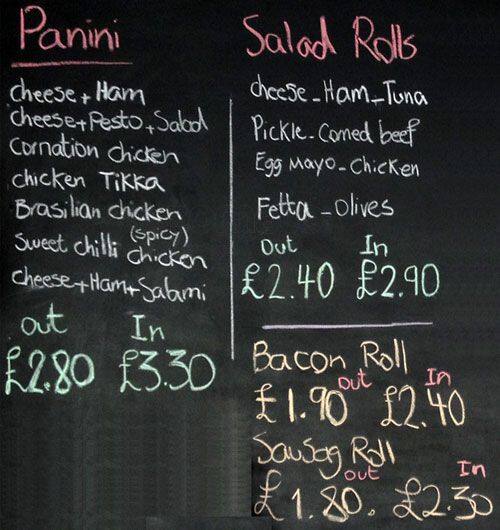 Panini
cheese + Ham
cheese + Pesto + Salad
Cornation chicken
chicken TIKKA
Brasilian chicken
(spicy)
Sweet chilli chicken
cheese + Ham + Salami
out In
£2.80 £3.30
Salad Rolls
cheese - Ham - Tuna
Pickle - Corned beef
Egg Mayo - Chicken
Fetta - Olives
Out In
£2.40 £2.90
Bacon Roll
out In
£1.90 £2.40
Sausag Roll
out In
£1.80. £2.30